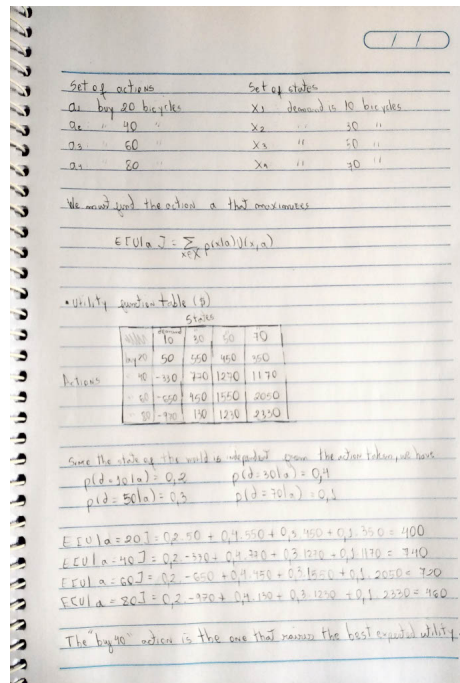 Set of actions Set of states
a1 buy 20 bicycles X1 demand is 10 bicycles
a2 " 40 " X2 " 30 "
a3 " 60 " X3 " 50 "
a4 " 80 " X4 " 70 "
We must find the action a that maximizes
E[U|a] = Σ x∈X p(x|a)U(x,a)
• Utility function table ($)
States
demand 10 30 50 70
buy 20 50 550 450 350
Actions " 40 -330 770 1270 1170
" 60 -650 450 1550 2050
" 80 -970 130 1230 2330
Since the state of the world is independent from the action taken, we have
p(d=10|a) = 0,2 p(d=30|a) = 0,4
p(d=50|a) = 0,3 p(d=70|a) = 0,1
E[U|a=20] = 0,2.50 + 0,4.550 + 0,3.450 + 0,1.350 = 400
E[U|a=40] = 0,2.-330 + 0,4.770 + 0,3.1270 + 0,1.1170 = 740
E[U|a=60] = 0,2.-650 + 0,4.450 + 0,3.1550 + 0,1.2050 = 720
E[U|a=80] = 0,2.-970 + 0,4.130 + 0,3.1230 + 0,1.2330 = 460
The "buy 40" action is the one that the best expected utility.